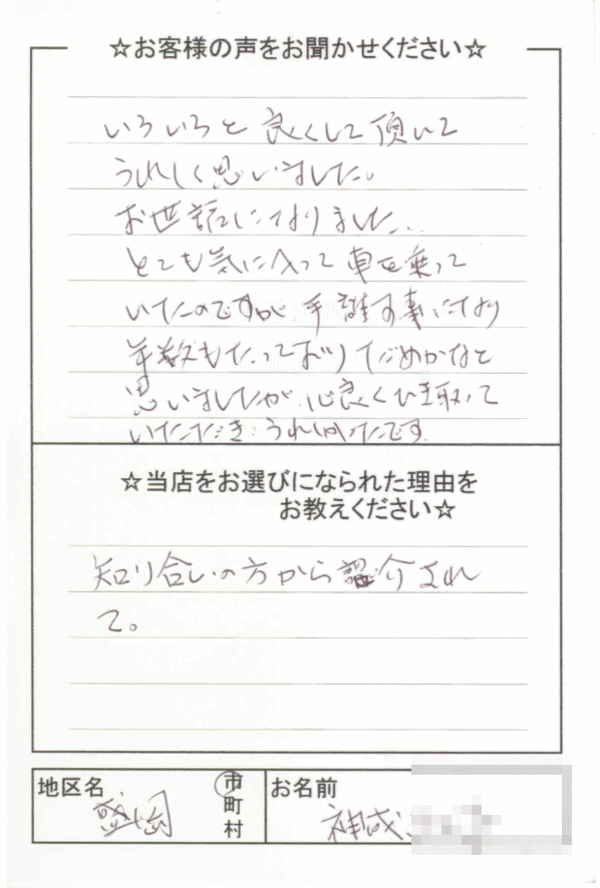 ☆お客様の声をお聞かせください☆
いろいろと良くして頂いて
うれしく思いました。
お世話になりました。
とても気に入って車を乗って
いたのですが 手離す事になり
年数もたっておりだめかなと
思いましたが、心良くひき取って
いただき うれしかったです
☆当店をお選びになられた理由を
お教えください☆
知り合いの方から紹介され
て。
地区名 盛岡 市町村 お名前 神成